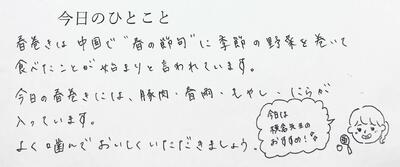 今日のひとこと
春巻きは中国で"春の節句"に季節の野菜を巻いて
食べたことが始まりと言われています。
今日の春巻きには、豚肉・春雨・もやし・にらが
入っています。
よく噛んでおいしくいただきましょう。
今日は
椎名先生の
おすすめ!